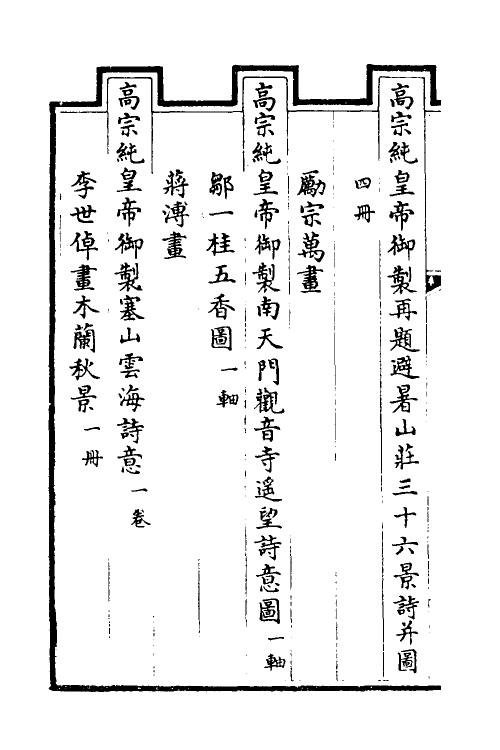 高宗純皇帝御製再題避暑山莊三十六景詩并圖
四冊
勵宗萬畫
高宗純皇帝御製南天門觀音寺遙望詩意圖一軸
鄒一桂五香圖一軸
蔣溥畫
高宗純皇帝御製塞山雲海詩意一卷
李世倬畫木蘭秋景一冊